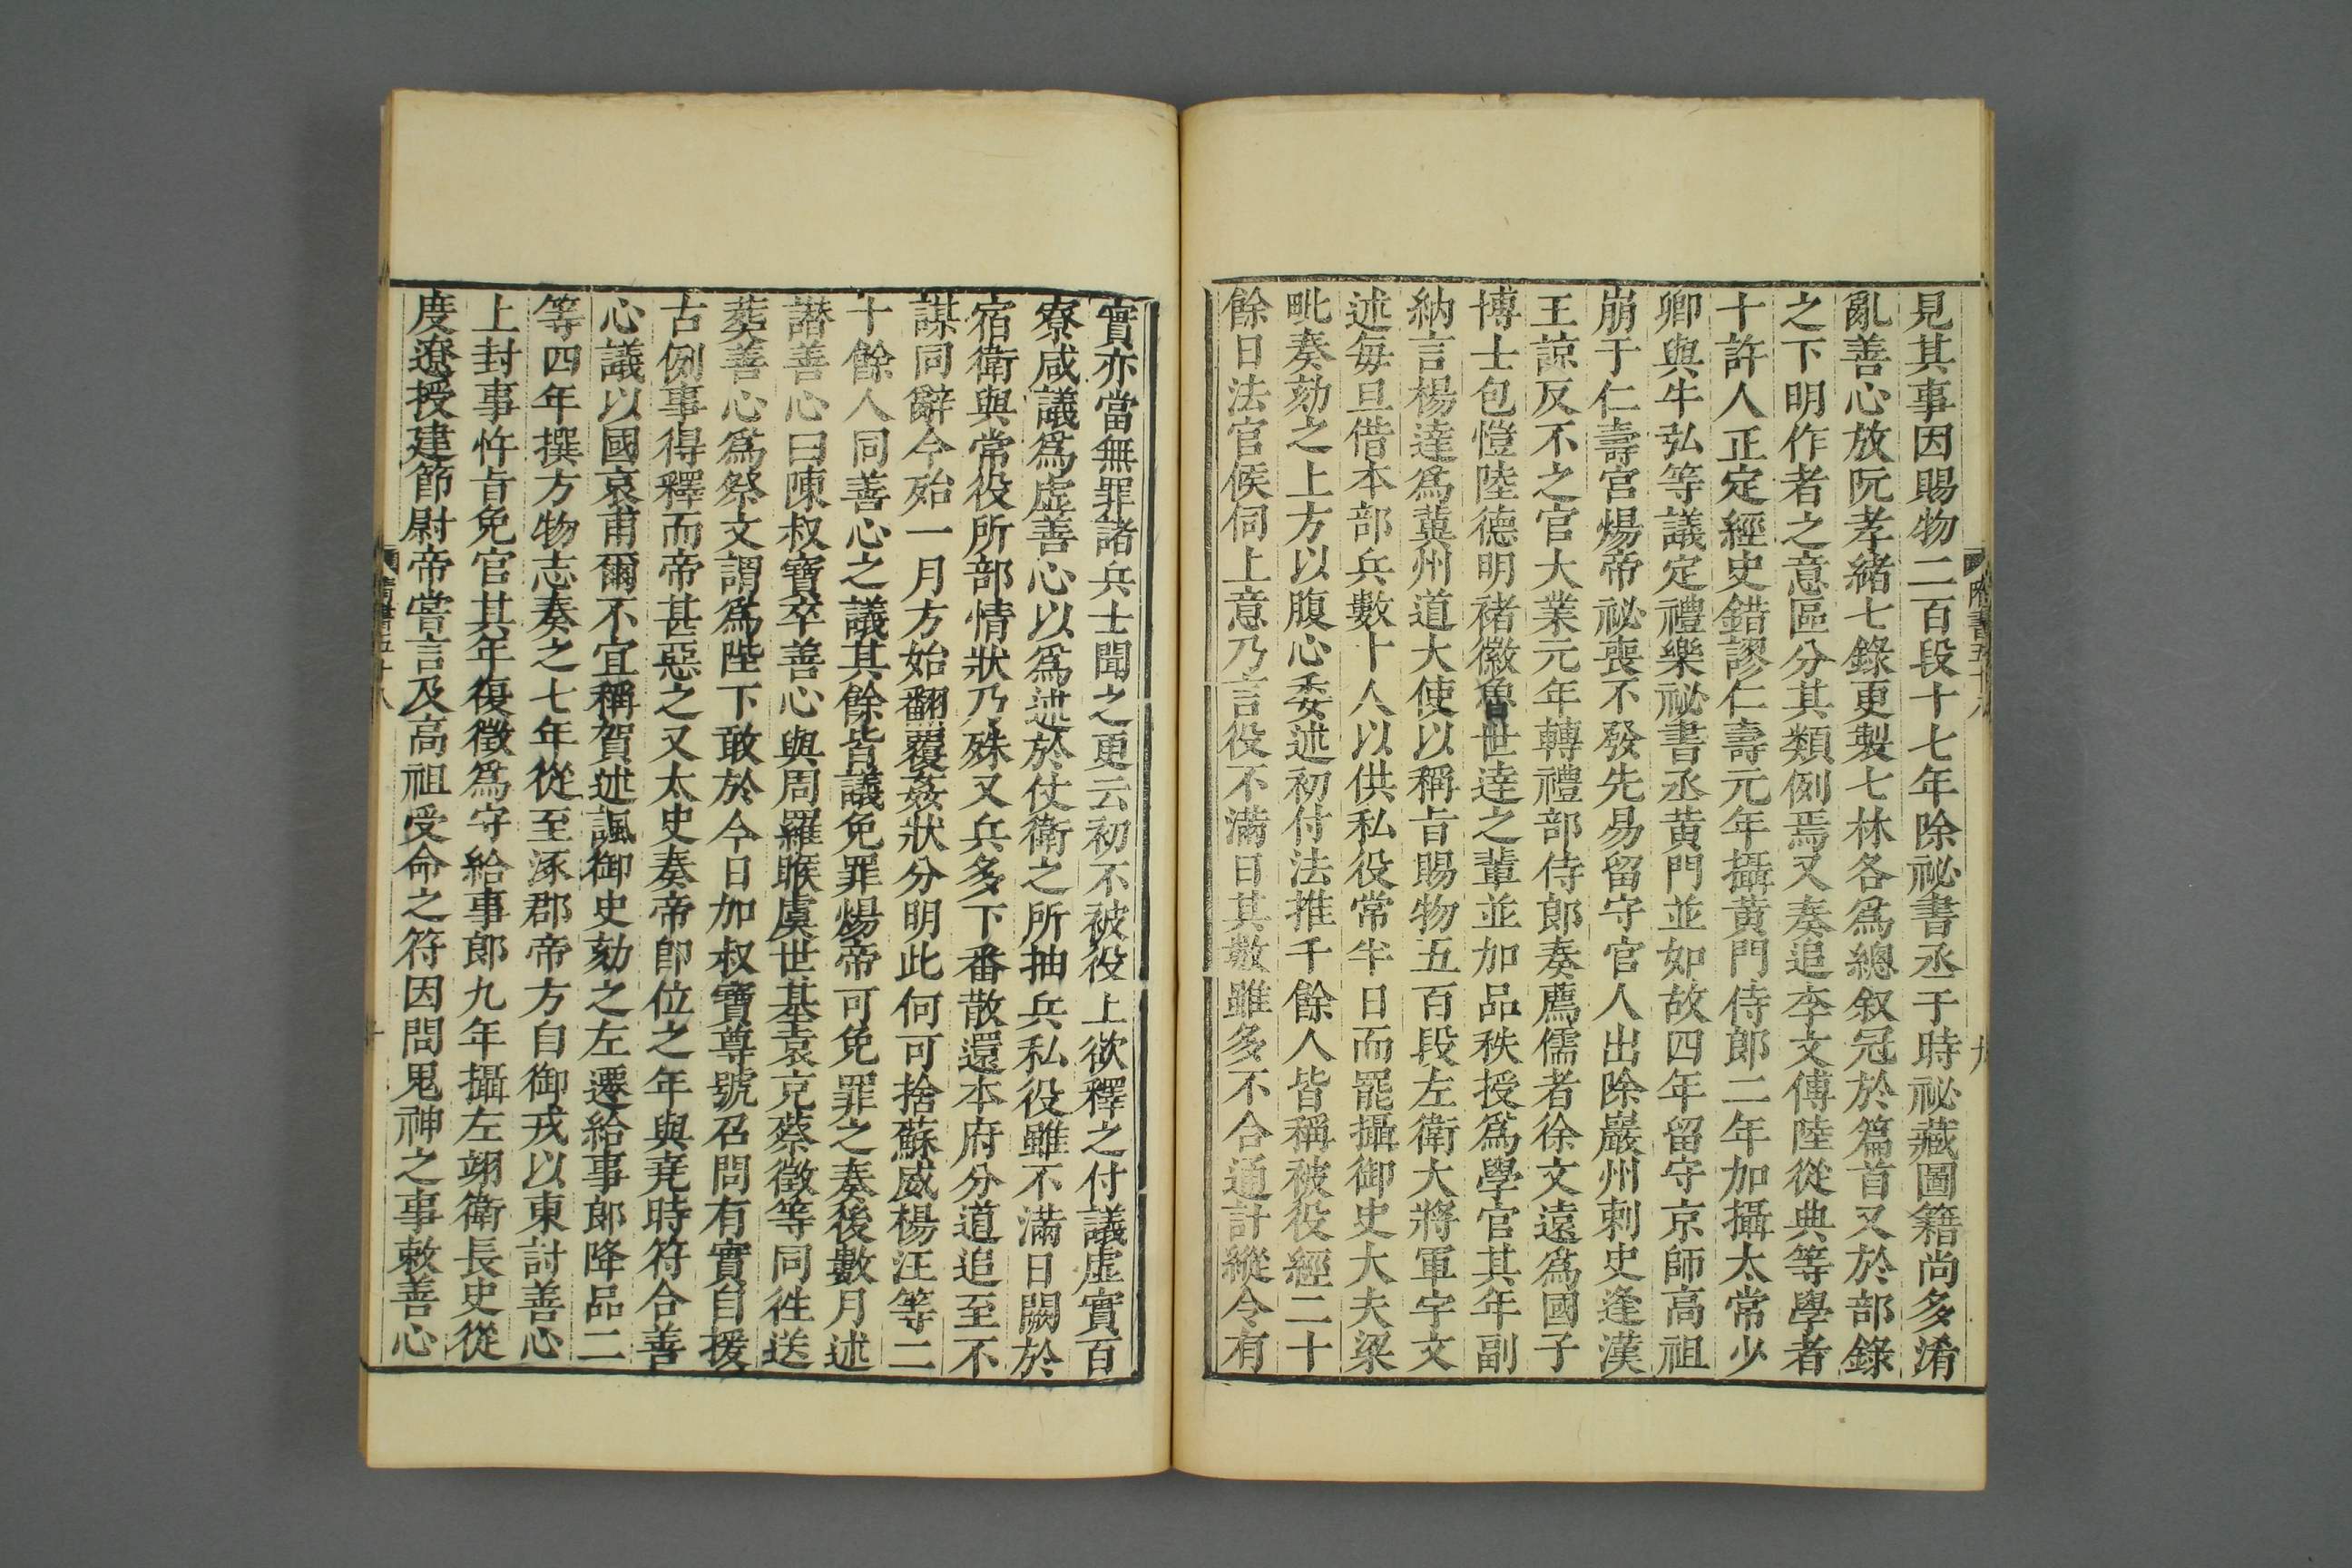 見其事因賜物二百段十七年除祕書丞于時祕藏圖籍尚多淆
亂善心放阮孝緒七錄更製七林各爲總叙冠於篇首又於部錄
之下明作者之意區分其類例焉又奏追李文傅陸從典等學者
十許人正定經史錯謬仁壽元年攝黄門侍郎二年加攝太常少
卿與牛弘等議定禮樂祕書丞黄門並如故四年留守京師高祖
崩于仁壽宮煬帝祕喪不發先易留守官人出除巖州刺史逢漢
王諒反不之官大業元年轉禮部侍郎奏薦儒者徐文遠爲國子
博士包愷陸德明褚徽魯世達之輩並加品秩授爲學官其年副
納言楊達爲冀州道大使以稱旨賜物五百段左衛大將軍宇文
述每旦借本部兵數十人以供私役常半日而罷攝御史大夫梁
毗奏劾之上方以腹心委述初付法推千餘人皆稱被役經二十
餘日法官候伺上意乃言役不滿日其數雖多不合通計縱令有
隋書五十八
九
實亦當無罪諸兵士聞之更云初不被役上欲釋之付議虛實百
寮咸議爲虛善心以爲述於仗衛之所抽兵私役雖不滿日闕於
宿衛與常役所部情狀乃殊又兵多下番散還本府分道追至不
謀同辭今殆一月方始翻覆姦狀分明此何可捨蘇威楊汪等二
十餘人同善心之議其餘皆議免罪煬帝可免罪之奏後數月述
譖善心曰陳叔寶卒善心與周羅睺虞世基袁充蔡徵等同徃送
葬善心爲祭文謂爲陛下敢於今日加叔寶尊號召問有實自援
古例事得釋而帝甚惡之又太史奏帝即位之年與堯時符合善
心議以國哀甫爾不宜稱賀述諷御史劾之左遷給事郎降品二
等四年撰方物志奏之七年從至涿郡帝方自御戎以東討善心
上封事忤旨免官其年復徵爲守給事郎九年攝左翊衛長史從
度遼授建節尉帝嘗言及高祖受命之符因問鬼神之事敕善心
隋書五十八
十